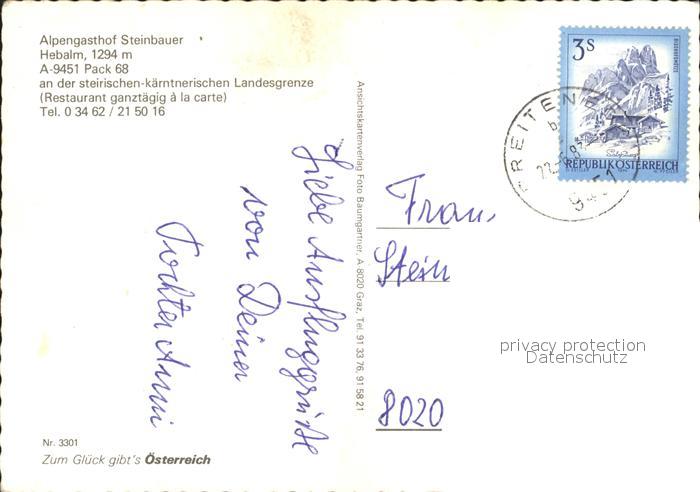 Alpengasthof Steinbauer
Hebalm, 1294 m
A-9451 Pack 68
an der steirischen-kärntnerischen Landesgrenze
(Restaurant ganztägig à la carte)
Tel. 0 34 62 / 21 50 16
Liebe Ausflugsgrüße
von Deiner
Tochter Anni
Nr. 3301
Zum Glück gibt's Österreich
Ansichtskartenverlag Foto Baumgartner, A 8020 Graz, Tel. 91 33 76, 91 58 21
3 S
REPUBLIK ÖSTERREICH
Frau
Stein
8020
privacy protection
Datenschutz